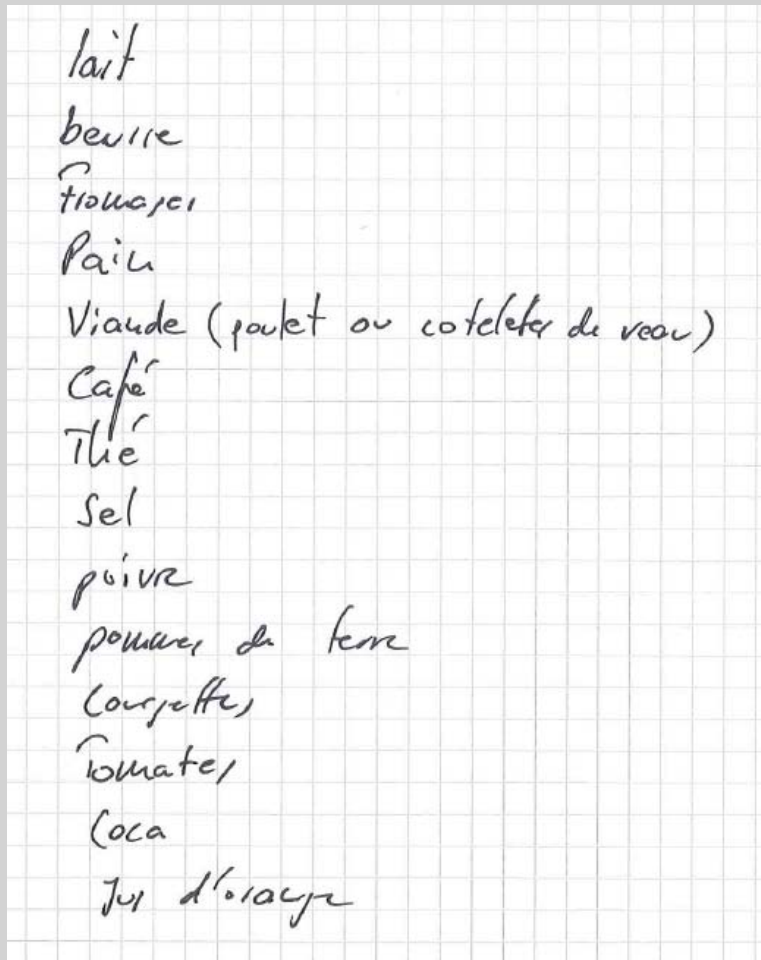 lait
beurre
fromages
Pain
Viande (poulet ou cotelettes de veau)
Café
Thé
Sel
poivre
pommes de terre
Courgettes
Tomates
Coca
Jus d'orange